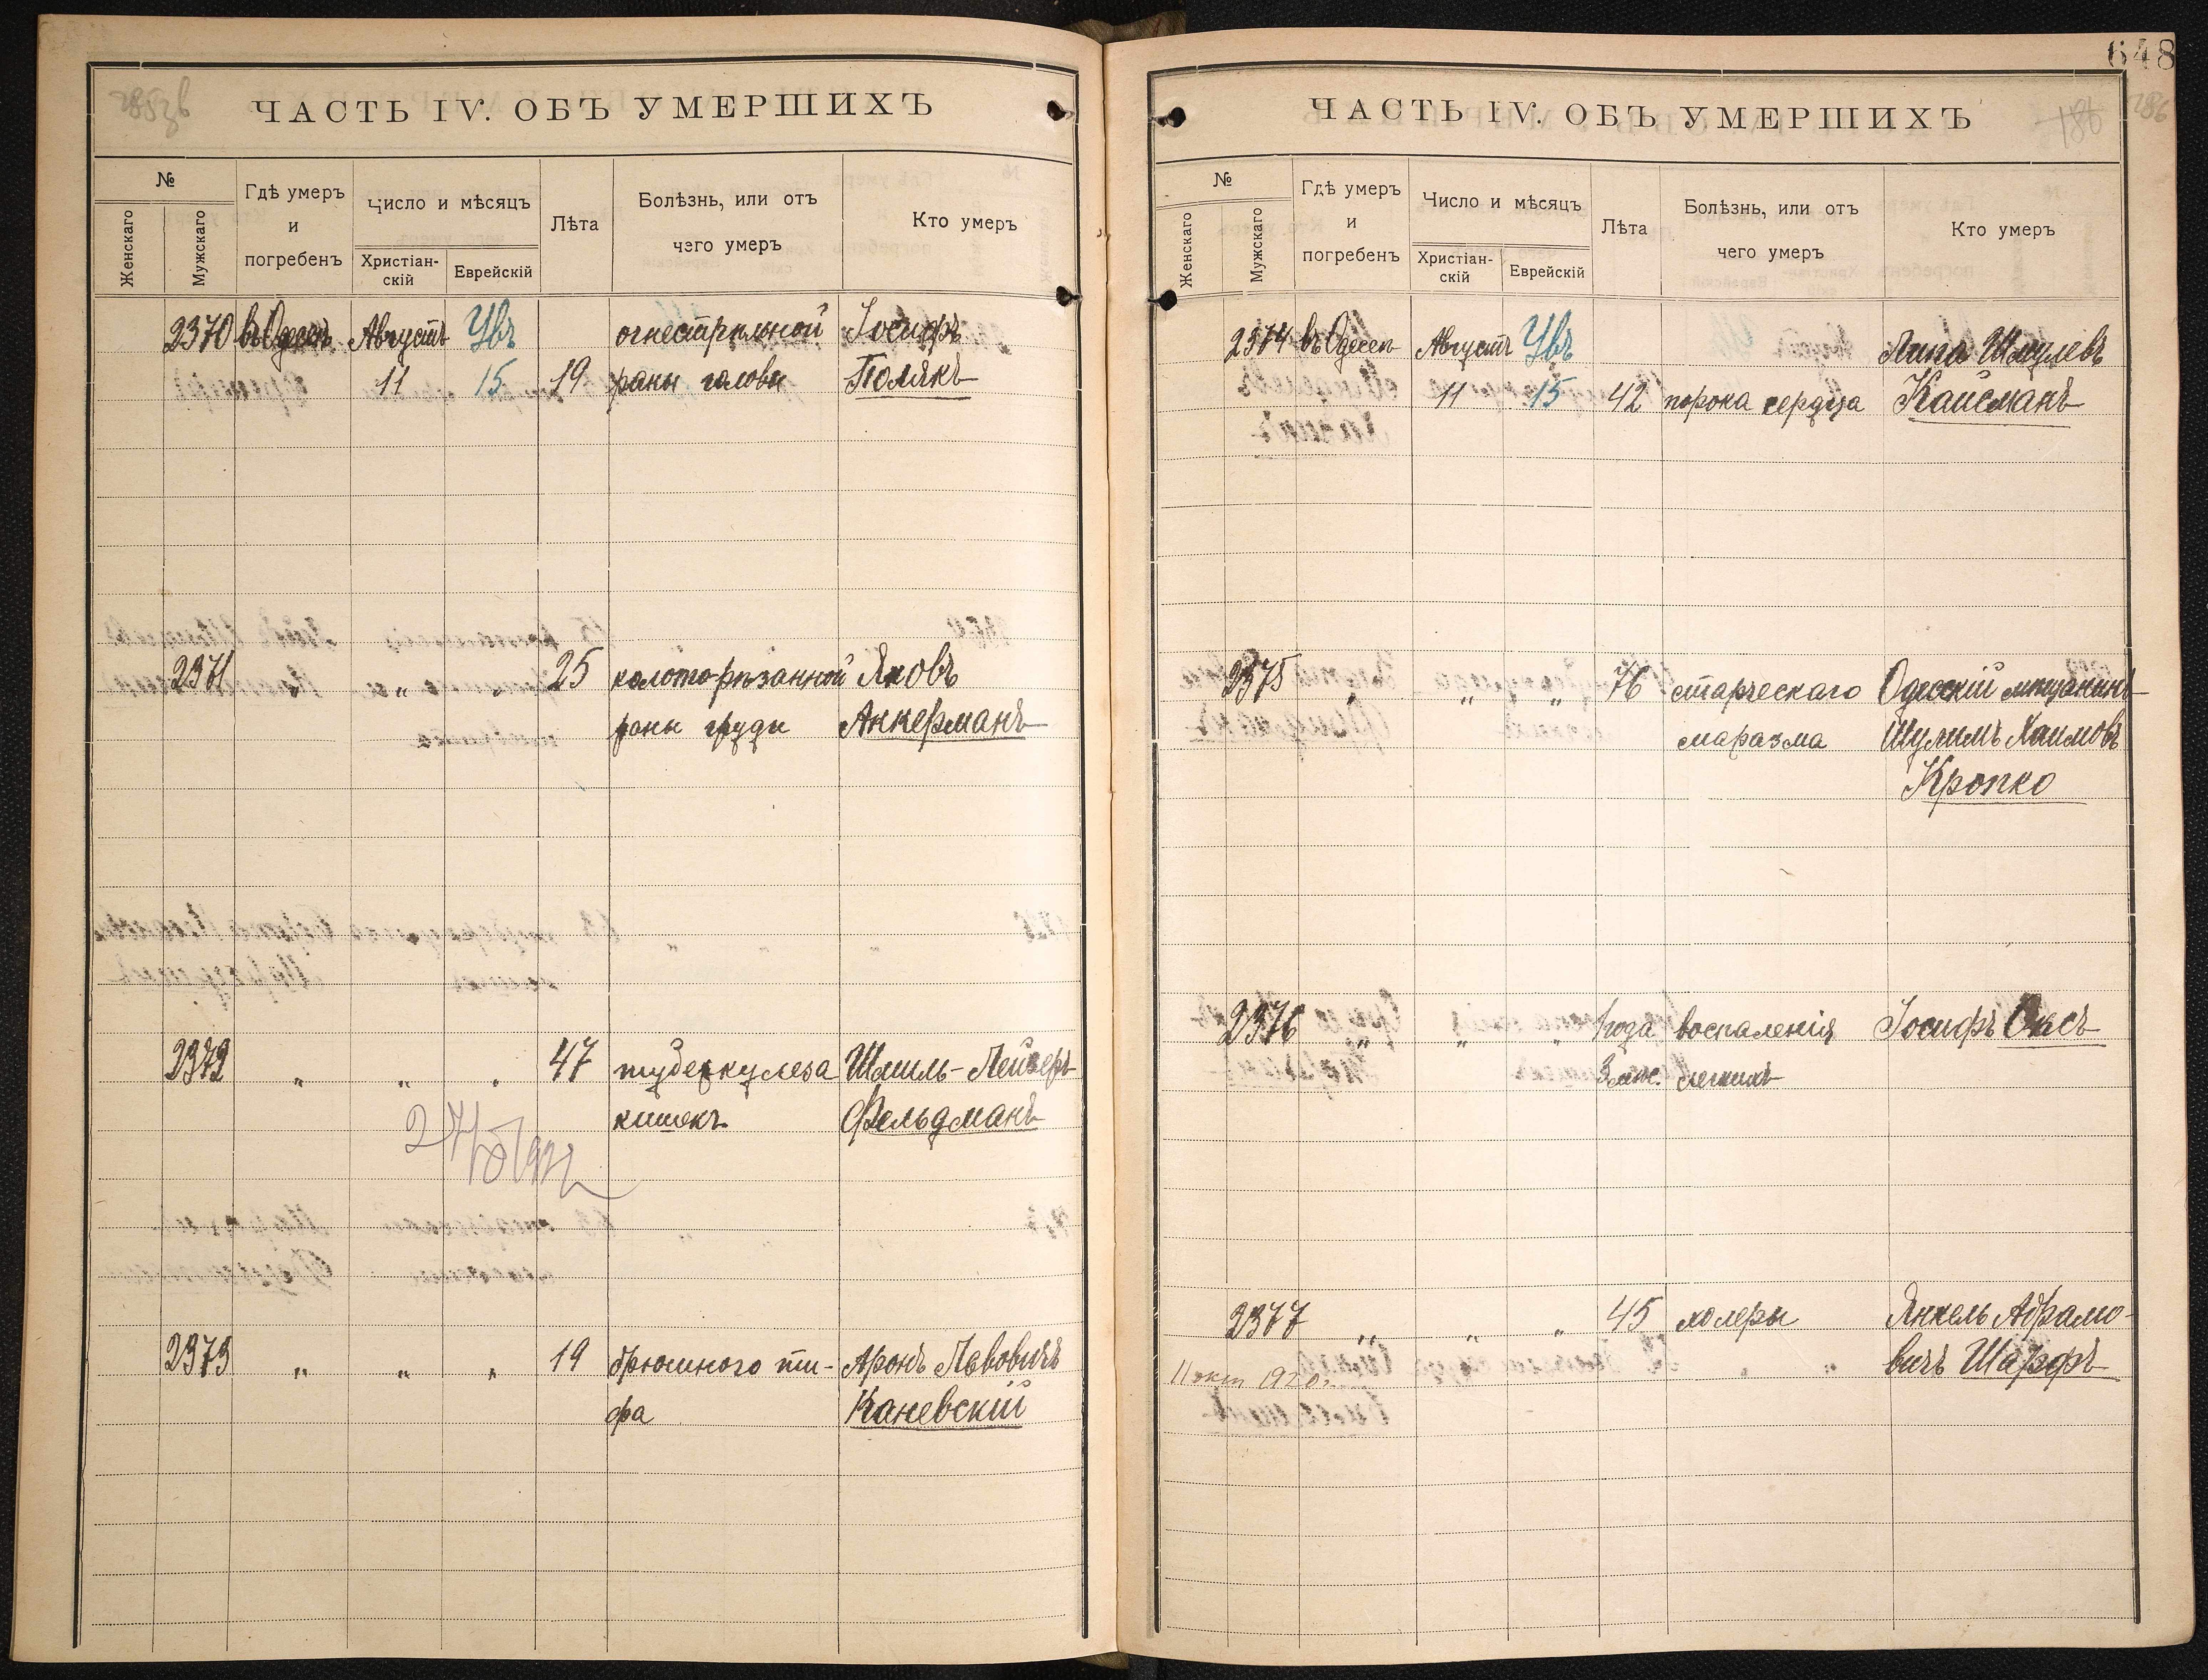 648
ЧАСТЬ IV. ОБЪ УМЕРШИХЪ
№
Женскаго
Мужскаго
Гдѣ умеръ
и
погребенъ
Число и мѣсяцъ
Христіан-
скій
Еврейскій
Лѣта
Болѣзнь, или отъ
чего умеръ
Кто умеръ
2370 въ Одессѣ Августъ Увъ огнестрѣльной Іосифъ
11 15 19 раны головы Полякъ
2371 " " " 25 колото-рѣзанной Яковъ
раны груди Анкерманъ
2372 " " " 47 туберкулеза Шмиль-Лейзеръ
кишекъ Фельдманъ
2373 " " " 19 брюшного ти- Аронъ Лѣвовичъ
фа Каневскій
ЧАСТЬ IV. ОБЪ УМЕРШИХЪ
186
286
№
Женскаго
Мужскаго
Гдѣ умеръ
и
погребенъ
Число и мѣсяцъ
Христіан-
скій
Еврейскій
Лѣта
Болѣзнь, или отъ
чего умеръ
Кто умеръ
2374 въ Одессѣ Августъ Увъ Липа Шмулевъ
11 15 42 порока сердца Кайсманъ
2375 " " " 76 старческаго Одесскій мѣщанинъ
маразма Шулимъ Хаимовъ
Кропко
2376 " " " 1 года воспаленія Іосифъ Оксъ
3 мѣс. легкихъ
2377 " " " 45 холеры Янкель Абрамо-
11 окт 1920 г. вичъ Шарфъ